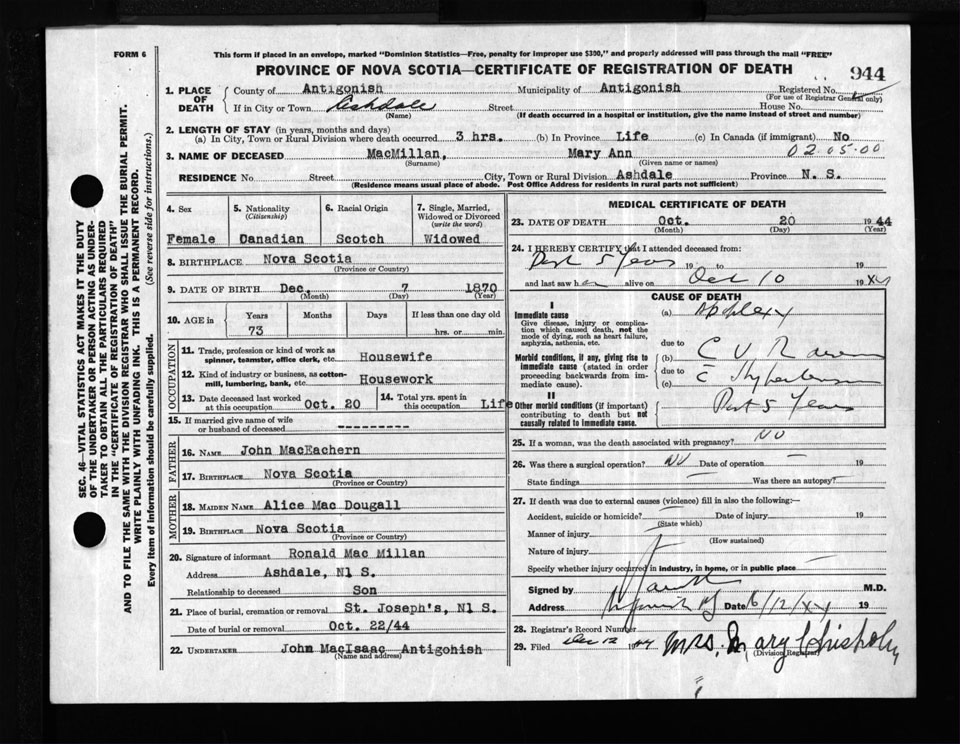 FORM 6
This form if placed in an envelope, marked "Dominion Statistics—Free, penalty for improper use $300," and properly addressed will pass through the mail "FREE"
PROVINCE OF NOVA SCOTIA—CERTIFICATE OF REGISTRATION OF DEATH
944
1. PLACE OF DEATH
County of Antigonish Municipality of Antigonish Registered No.
(For use of Registrar General only)
If in City or Town Ashdale Street House No.
(Name) (If death occurred in a hospital or institution, give the name instead of street and number)
2. LENGTH OF STAY (in years, months and days)
(a) In City, Town or Rural Division where death occurred 3 hrs. (b) In Province Life (c) In Canada (if immigrant) No
3. NAME OF DECEASED MacMillan, Mary Ann 02.05.00
(Surname) (Given name or names)
RESIDENCE No. Street City, Town or Rural Division Ashdale Province N. S.
(Residence means usual place of abode. Post Office Address for residents in rural parts not sufficient)
4. Sex
Female
5. Nationality
(Citizenship)
Canadian
6. Racial Origin
Scotch
7. Single, Married, Widowed or Divorced
(write the word)
Widowed
8. BIRTHPLACE Nova Scotia
(Province or Country)
9. DATE OF BIRTH Dec. 7 1870
(Month) (Day) (Year)
10. AGE in Years Months Days If less than one day old
73 hrs. or min.
OCCUPATION
11. Trade, profession or kind of work as
spinner, teamster, office clerk, etc. Housewife
12. Kind of industry or business, as cotton-
mill, lumbering, bank, etc. Housework
13. Date deceased last worked
at this occupation Oct. 20
14. Total yrs. spent in
this occupation Life
15. If married give name of wife
or husband of deceased ----------
FATHER
16. NAME John MacEachern
17. BIRTHPLACE Nova Scotia
(Province or Country)
MOTHER
18. MAIDEN NAME Alice Mac Dougall
19. BIRTHPLACE Nova Scotia
(Province or Country)
20. Signature of informant Ronald Mac Millan
Address Ashdale, Nl S.
Relationship to deceased Son
21. Place of burial, cremation or removal St. Joseph's, Nl S.
Date of burial or removal Oct. 22/44
22. UNDERTAKER John MacIsaac Antigohish
(Name and address)
MEDICAL CERTIFICATE OF DEATH
23. DATE OF DEATH Oct. 20 1944
(Month) (Day) (Year)
24. I HEREBY CERTIFY that I attended deceased from:
Past 5 Years 19 to 19
and last saw her alive on Oct 10 19
CAUSE OF DEATH
I
Immediate cause
Give disease, injury or complica-
tion which caused death, not the
mode of dying, such as heart failure,
asphyxia, asthenia, etc.
(a) Apoplexy
due to
Morbid conditions, if any, giving rise to
immediate cause (stated in order
proceeding backwards from im-
mediate cause).
(b) C V
due to
(c)
II
Other morbid conditions (if important)
contributing to death but not
causally related to immediate cause.
Past 5 Years
25. If a woman, was the death associated with pregnancy? NO
26. Was there a surgical operation? NO Date of operation 19
State findings Was there an autopsy?
27. If death was due to external causes (violence) fill in also the following:
Accident, suicide or homicide? Date of injury 19
(State which)
Manner of injury
(How sustained)
Nature of injury
Specify whether injury occurred in industry, in home, or in public place
Signed by M.D.
Address Date 6/12/ 19
28. Registrar's Record Number
29. Filed Dec 12 1944 Mrs. Mary Chisholm
(Division Registrar)
SEC. 46—VITAL STATISTICS ACT MAKES IT THE DUTY
OF THE UNDERTAKER OR PERSON ACTING AS UNDER-
TAKER TO OBTAIN ALL THE PARTICULARS REQUIRED
IN THE "CERTIFICATE OF REGISTRATION OF DEATH"
AND TO FILE THE SAME WITH THE DIVISION REGISTRAR WHO SHALL ISSUE THE BURIAL PERMIT.
WRITE PLAINLY WITH UNFADING INK. THIS IS A PERMANENT RECORD.
Every item of information should be carefully supplied. (See reverse side for instructions.)